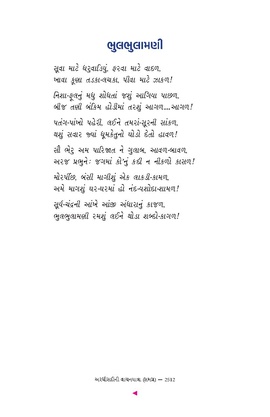 ભુલભુલામણી
સૂવા માટે ધરુવાડિયું, ફરવા માટે વાદળ,
ખાવા કૂણા તડકા-લચકા, પીવા માટે ઝાકળ!
નિશા-ફૂલનું મધુ શોધતાં જશું આગિયા પાછળ,
બીજ તણી બંકિમ હોડીમાં તરશું આગળ...આગળ!
પતંગ-પાંખો પહેરી, લઈને તમરાં-સૂરની સાંકળ,
થશું સવાર જ્યાં ધૂમકેતુનો ઘોડો દેતો હાવળ!
સૌ ભેટુ અમ પારિજાત ને ગુલાબ, આવળ-બાવળ,
અરજ પ્રભુને: જગમાં કો'નું કદી ન નીકળો કાસળ!
મોરપીંછ, બંસી માગીશું એક લાકડી-કામળ,
અમે માગશું ઘર-ઘરમાં હો નંદ-યશોદા-શામળ!
સૂર્ય-ચંદ્રની આંખે આંજી અંધારાનું કાજળ,
ભુલભુલામણી રમશું લઈને થોડા શબ્દો-કાગળ!